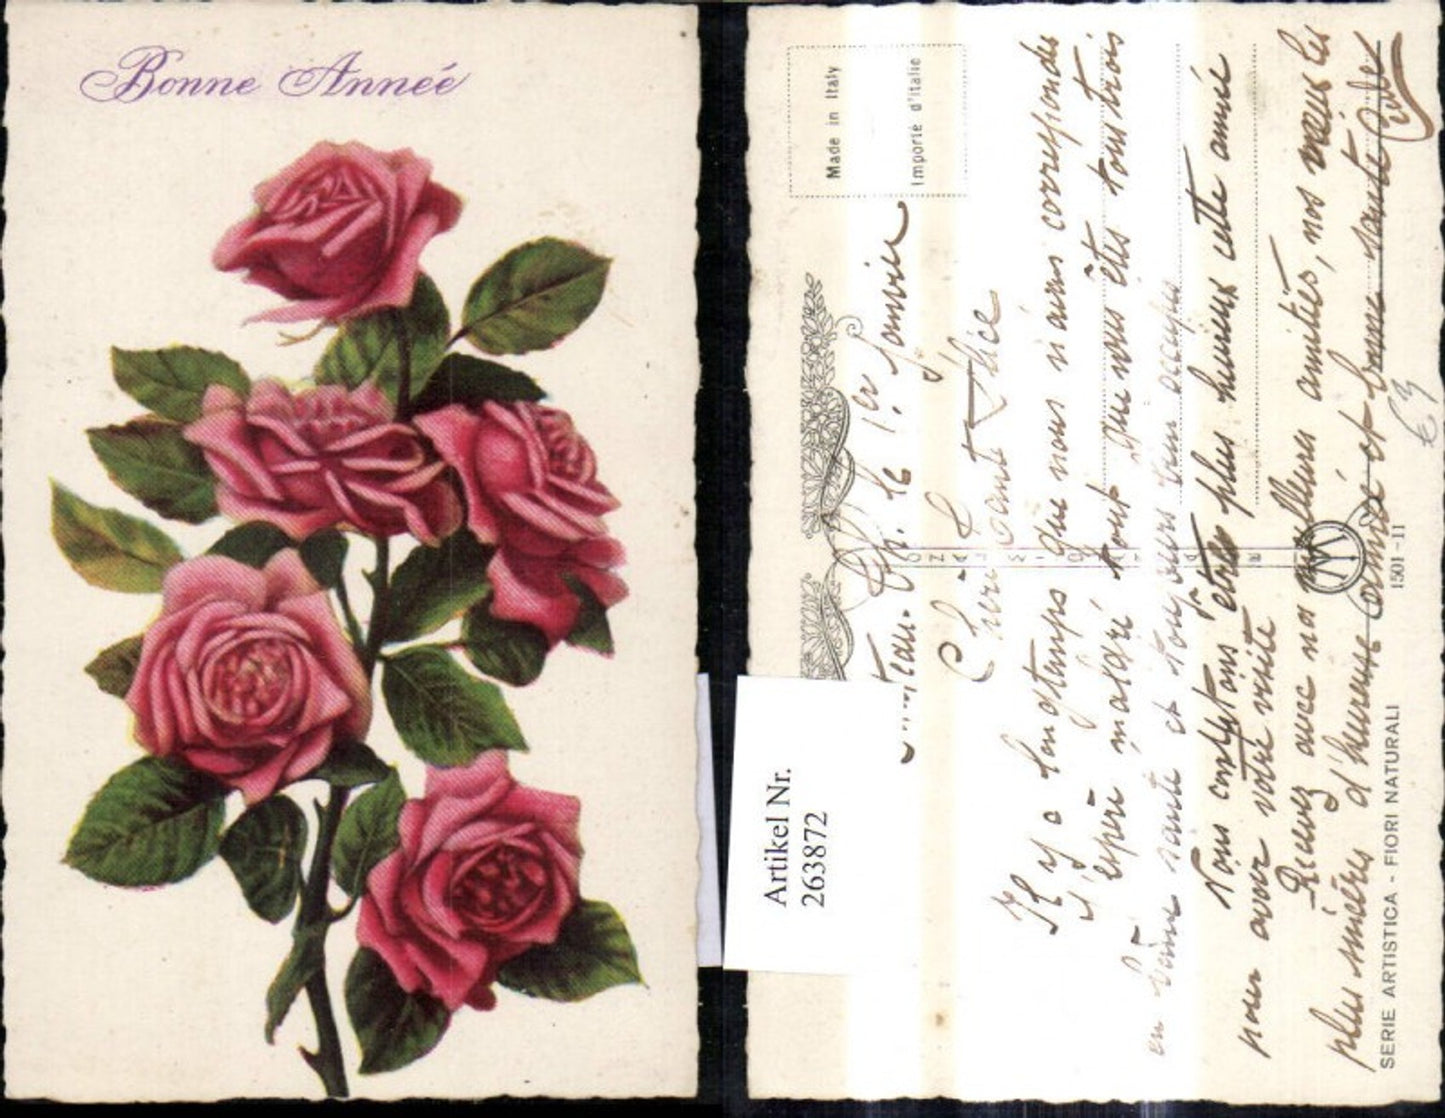 Bonne Année
Made in Italy
Importé d'Italie
Artikel Nr.
263872
Ch. le 1er Janvier
Chère Tante Alice
Il y a longtemps que nous n'avons correspondu
J'espère malgré tout que vous êtes tous trois
en bonne santé et toujours bien occupés
Nous comptons être plus heureux cette année
pour avoir votre visite
Recevez avec nos meilleures amitiés, nos vœux les
plus sincères d'heureuse année et bonne santé
SERIE ARTISTICA - FIORI NATURALI
1501-11
€3